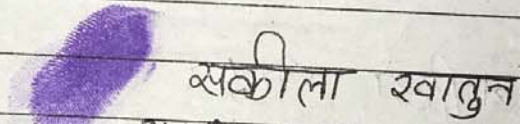 सकीला खातुन